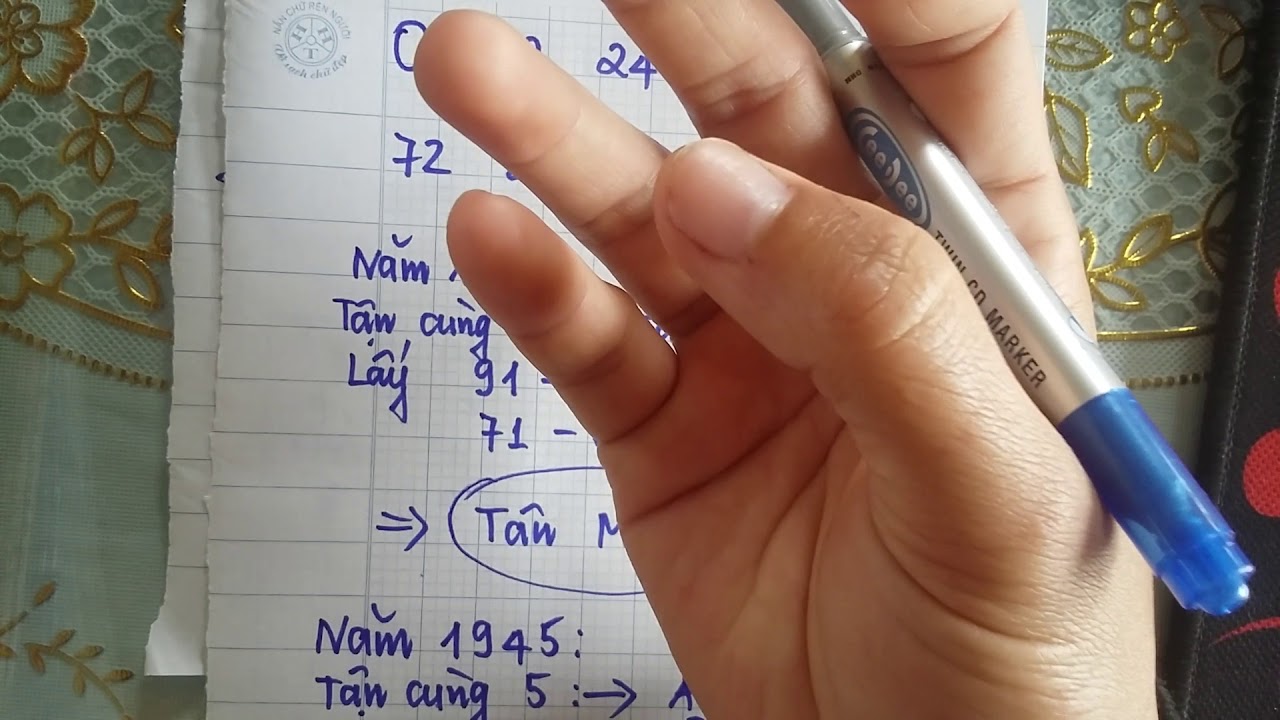 NẮN CHỮ RÈN NGƯỜI
H H T
Vở sạch chữ đẹp
24
72
Năm
Tận cùng
Lấy 91 -
71 -
⇒ Tân
Năm 1945:
Tận cùng 5 :→ A
GeeJee
TWIN CD MARKER